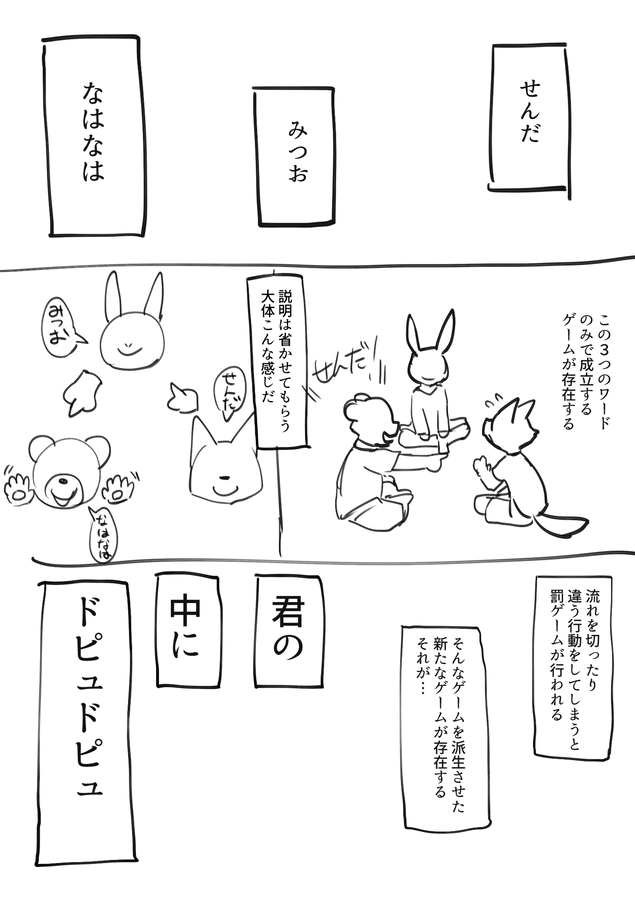 せんだ
みつお
なはなは
この３つのワード
のみで成立する
ゲームが存在する
せんだ！！
説明は省かせてもらう
大体こんな感じだ
せんだ
みつお
なはなは
流れを切ったり
違う行動をしてしまうと
罰ゲームが行われる
そんなゲームを派生させた
新たなゲームが存在する
それが…
君の
中に
ドピュドピュ